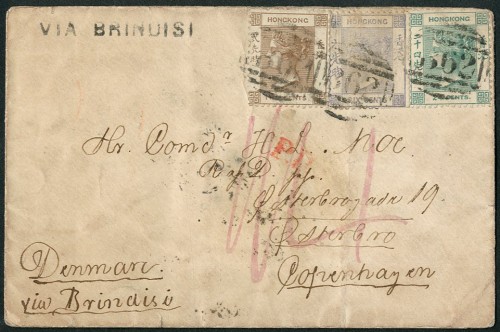 VIA BRINDISI
HONGKONG HONGKONG HONGKONG
CENTS SIX CENTS CENTS
B62 62 B62
Hr. Comdr H. L.
R. af D.
Østerbrogade 19.
Østerbro
Copenhagen
Denmark.
via Brindisi